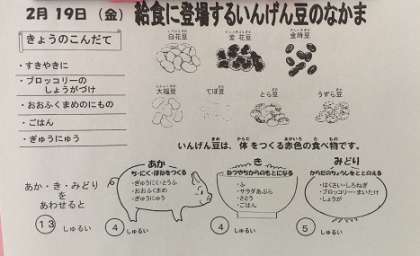 2月19日（金）給食に登場するいんげん豆のなかま
きょうのこんだて
・すきやきに
・ブロッコリーの
しょうがづけ
・おおふくまめのにもの
・ごはん
・ぎゅうにゅう
白花豆
紫花豆
金時豆
大福豆
てぼ豆
とら豆
うずら豆
いんげん豆は、体をつくる赤色の食べ物です。
あか・き・みどり
を
あわせると
13 しゅるい
あか
ち・にく・ほねをつくる
・ぎゅうにく・とうふ
・おおふくまめ
・ぎゅうにゅう
4 しゅるい
き
ねつやちからのもとになる
・ふ
・サラダあぶら
・さとう
・ごはん
4 しゅるい
みどり
からだのちょうしをととのえる
・はくさい・しろねぎ
・ブロッコリー・まいたけ
・しょうが
5 しゅるい